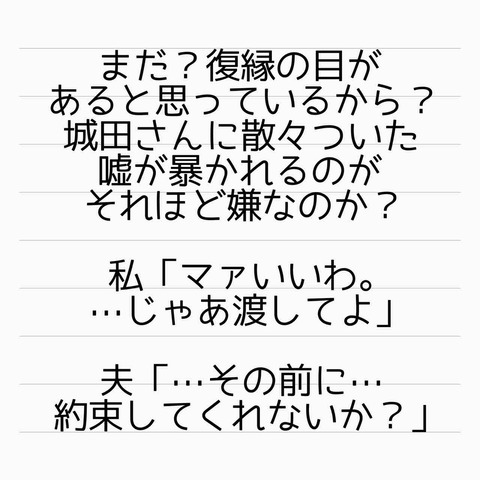 まだ？復縁の目が
あると思っているから？
城田さんに散々ついた
嘘が暴かれるのが
それほど嫌なのか？
私「マァいいわ。
…じゃあ渡してよ」
夫「…その前に…
約束してくれないか？」